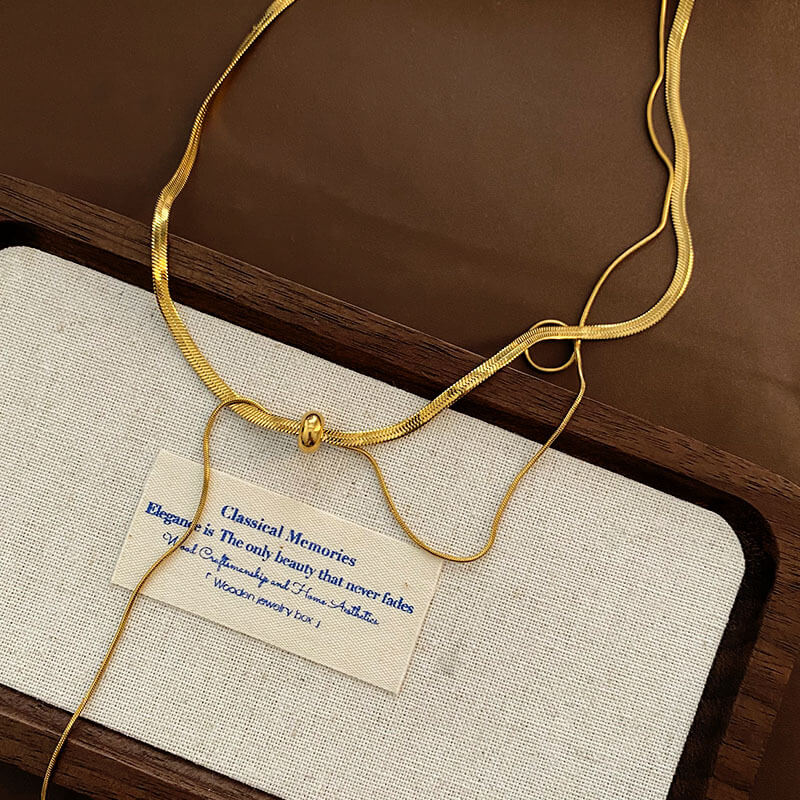 Classical Memories
Elegance is The only beauty that never fades
Wood Craftsmanship and Home Aesthetics
「 Wooden jewelry box 」